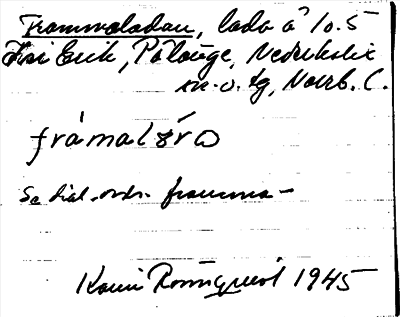 Frammaladan, lada å 10.5
Erik, Pålänge, Nederkalix
sn. o. tg, Norrb. C.
Se dial.-ordr. framma-
Karin Rönnqvist 1945